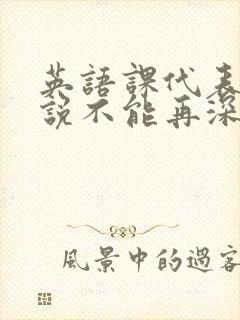 英語課代表
説不能再深
風景中的過客